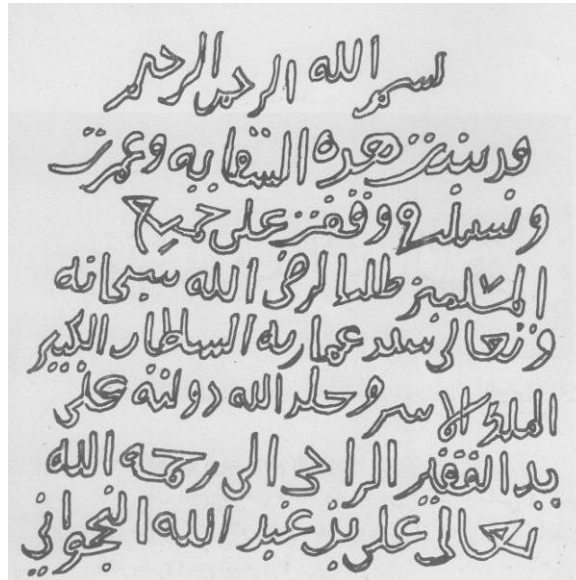 بسم الله الرحمن الرحيم
قد بنيت هذه السقاية وعمرت
وسبلت ووقفت على جميع
المسلمين طلبا لرضى الله سبحانه
وتعالى السلطان الكبير
الملك وخلد الله دولته على
يد الفقير الراجي الى رحمه الله
تعالى علي بن عبد الله النجواني